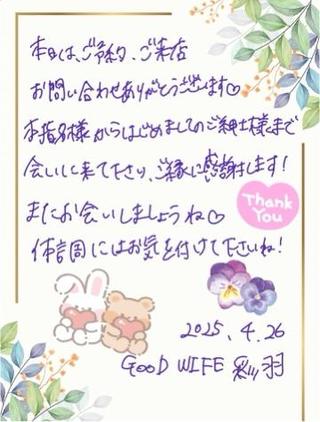 本日は、ご予約、ご来店
お問い合わせありがとうございます♡
本指名様からはじめましてのご紳士様まで
会いに来て下さり、ご縁に感謝します!
またお会いしましょうね♡
体調にはお気を付けて下さいね!
Thank
You
2025. 4. 26
GOOD WIFE 彩羽